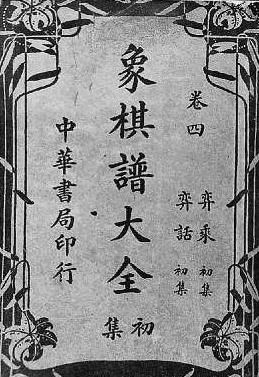 卷四
弈乘初集
弈話初集
象棋譜大全
初集
中華書局印行